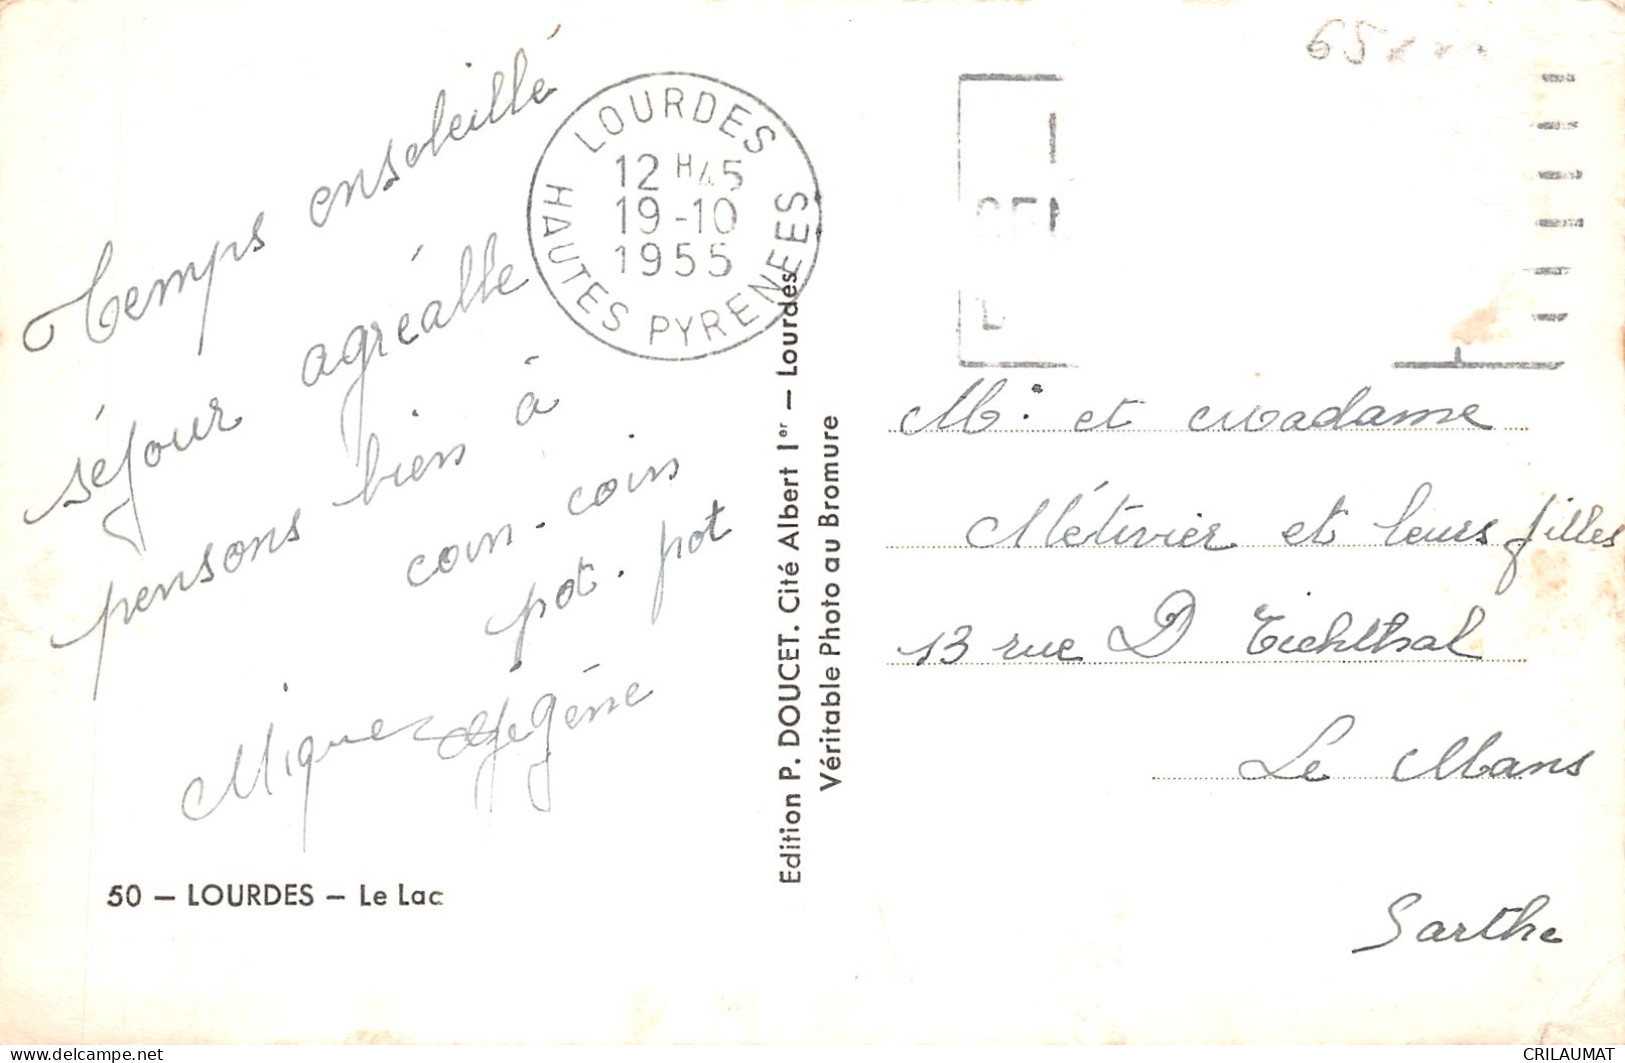 Temps ensoleillé
séjour agréable
pensons bien à
coin-coin
pot. pot
Gégène
50 – LOURDES – Le Lac
LOURDES
12 H45
19-10
1955
HAUTES PYRENEES
Edition P. DOUCET. Cité Albert 1er – Lourdes
Véritable Photo au Bromure
65
Mr et Madame
Métivier et leurs filles
13 rue D Eichthal
Le Mans
Sarthe
CRILAUMAT